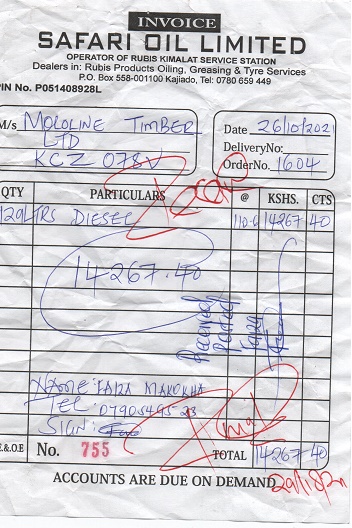 INVOICE
SAFARI OIL LIMITED
OPERATOR OF RUBIS KIMALAT SERVICE STATION
Dealers in: Rubis Products Oiling, Greasing & Tyre Services
P.O. Box 558-001100 Kajiado, Tel: 0780 659 449
PIN No. P051408928L
M/s MOLOLINE TIMBER
LTD
KCZ 078V
Date 26/10/2021
DeliveryNo:
OrderNo: 1604
QTY PARTICULARS @ KSHS. CTS
129LTRS DIESEL 110.6 14267 40
14267.40
Received
Posted
NAME: FAIZA MAKOKHA
TEL:
SIGN:
E.&O.E No. 755 TOTAL 14267 40
ACCOUNTS ARE DUE ON DEMAND